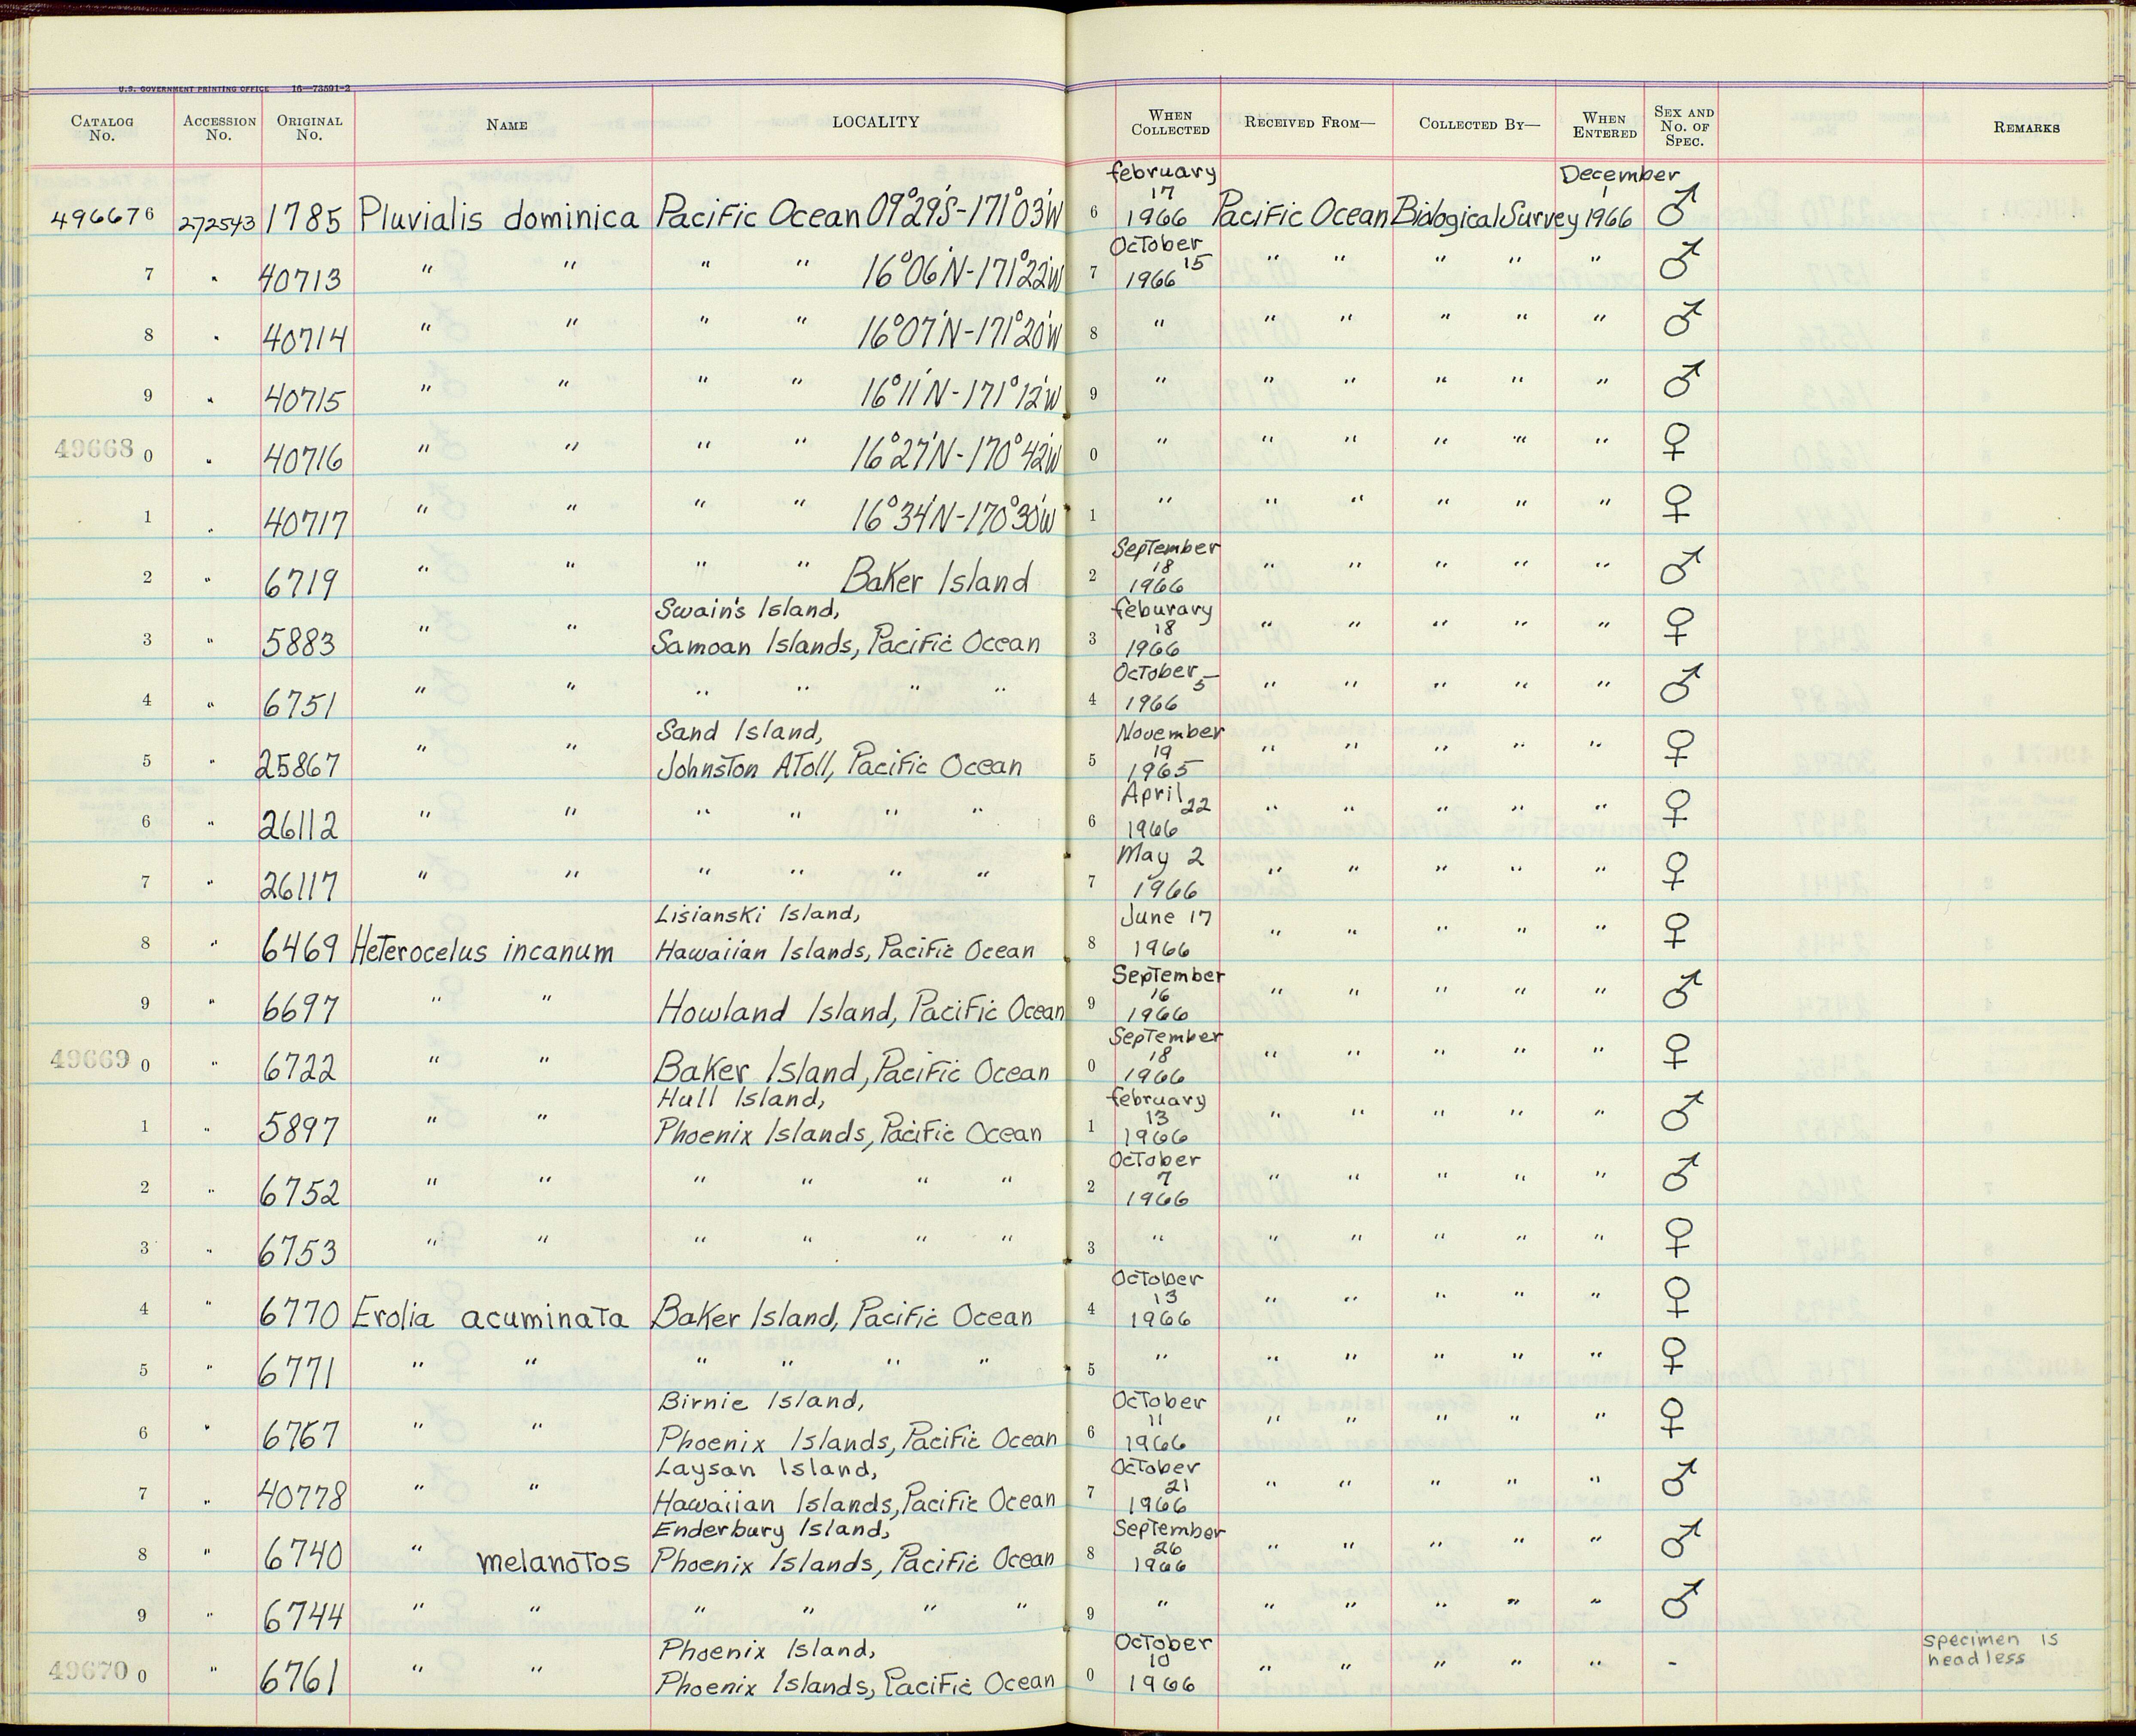 U.S. GOVERNMENT PRINTING OFFICE 16—73591-2
CATALOG No. ACCESSION No. ORIGINAL No. NAME LOCALITY WHEN COLLECTED RECEIVED FROM— COLLECTED BY— WHEN ENTERED SEX AND No. OF SPEC. REMARKS
496676 272543 1785 Pluvialis dominica Pacific Ocean 09°29'S-171°03'W 6 february 17 1966 Pacific Ocean Biological Survey December 1 1966 ♂
7 " 40713 " " " " 16°06'N-171°22'W 7 October 15 1966 " " " " " ♂
8 " 40714 " " " " 16°07'N-171°20'W 8 " " " " " " ♂
9 " 40715 " " " " 16°11'N-171°12'W 9 " " " " " " ♂
49668 0 " 40716 " " " " 16°27'N-170°42'W 0 " " " " " " ♀
1 " 40717 " " " " 16°34'N-170°30'W 1 " " " " " " ♀
2 " 6719 " " " " Baker Island 2 September 18 1966 " " " " " ♂
Swain's Island,
3 " 5883 " " Samoan Islands, Pacific Ocean 3 feburary 18 1966 " " " " " ♀
4 " 6751 " " " " " " 4 October 5 1966 " " " " " ♂
Sand Island,
5 " 25867 " " Johnston Atoll, Pacific Ocean 5 November 19 1965 " " " " " ♀
6 " 26112 " " " " " " 6 April 22 1966 " " " " " ♀
7 " 26117 " " " " " " 7 May 2 1966 " " " " " ♀
Lisianski Island,
8 " 6469 Heterocelus incanum Hawaiian Islands, Pacific Ocean 8 June 17 1966 " " " " " ♀
9 " 6697 " " Howland Island, Pacific Ocean 9 September 16 1966 " " " " " ♂
49669 0 " 6722 " " Baker Island, Pacific Ocean 0 September 18 1966 " " " " " ♀
Hull Island,
1 " 5897 " " Phoenix Islands, Pacific Ocean 1 february 13 1966 " " " " " ♂
2 " 6752 " " " " " " 2 October 7 1966 " " " " " ♂
3 " 6753 " " " " " " 3 " " " " " " ♀
4 " 6770 Erolia acuminata Baker Island, Pacific Ocean 4 October 13 1966 " " " " " ♀
5 " 6771 " " " " " " 5 " " " " " " ♀
Birnie Island,
6 " 6767 " " Phoenix Islands, Pacific Ocean 6 October 11 1966 " " " " " ♀
Laysan Island,
7 " 40778 " " Hawaiian Islands, Pacific Ocean 7 October 21 1966 " " " " " ♂
Enderbury Island,
8 " 6740 " melanotos Phoenix Islands, Pacific Ocean 8 September 26 1966 " " " " " ♂
9 " 6744 " " " " " " 9 " " " " " " ♂
Phoenix Island,
49670 0 " 6761 " " Phoenix Islands, Pacific Ocean 0 October 10 1966 " " " " " - specimen is headless